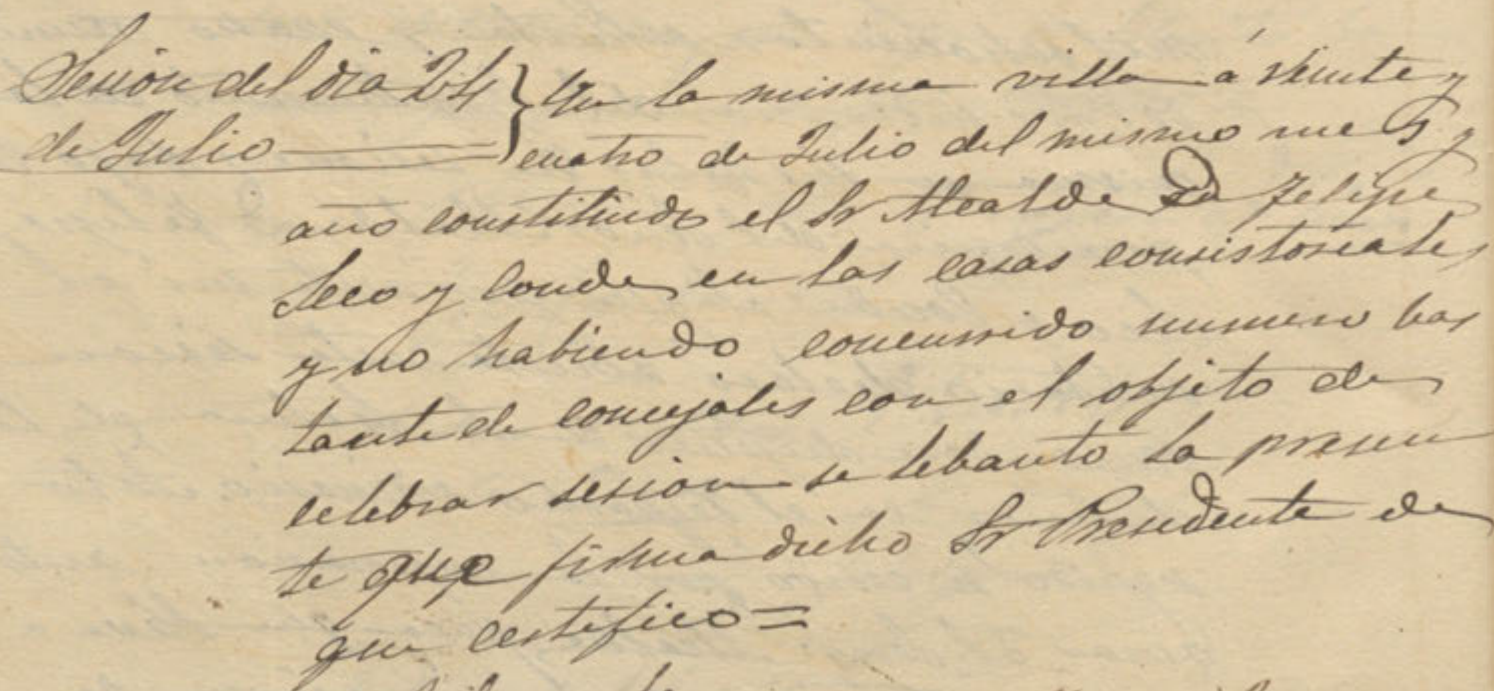 Sesión del dia 24
de Julio
En la misma villa á veinte y
cuatro de Julio del mismo mes y
año constituido el Sr Alcalde Dn Felipe
Seco y Conde en las casas consistoriales
y no habiendo concurrido numero bas
tante de concejales con el objeto de
celebrar sesion se lebanto la presen
te que firma dicho Sr Presidente de
que certifico =